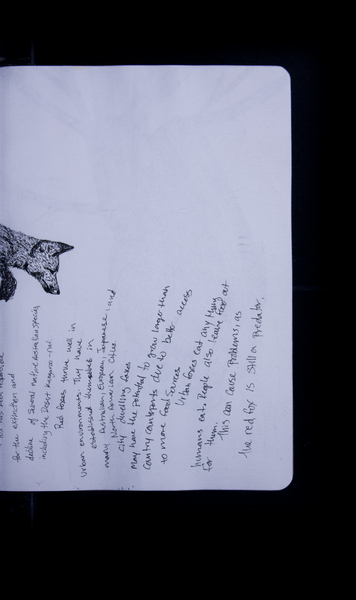 has been responsible
for the extinction and
decline of several native Australian species
including the Desert Kangaroo-rat.
Red foxes thrive well in
urban environments. They have
established themselves in
many Australian, European, Japanese, and
North American cities.
City dwelling foxes
May have the potential to grow larger than
Country counterparts due to better access
to more food sources
Urban foxes eat anything
humans eat, People also leave food out
for them.
This can cause problems, as
the red fox is still a predator.